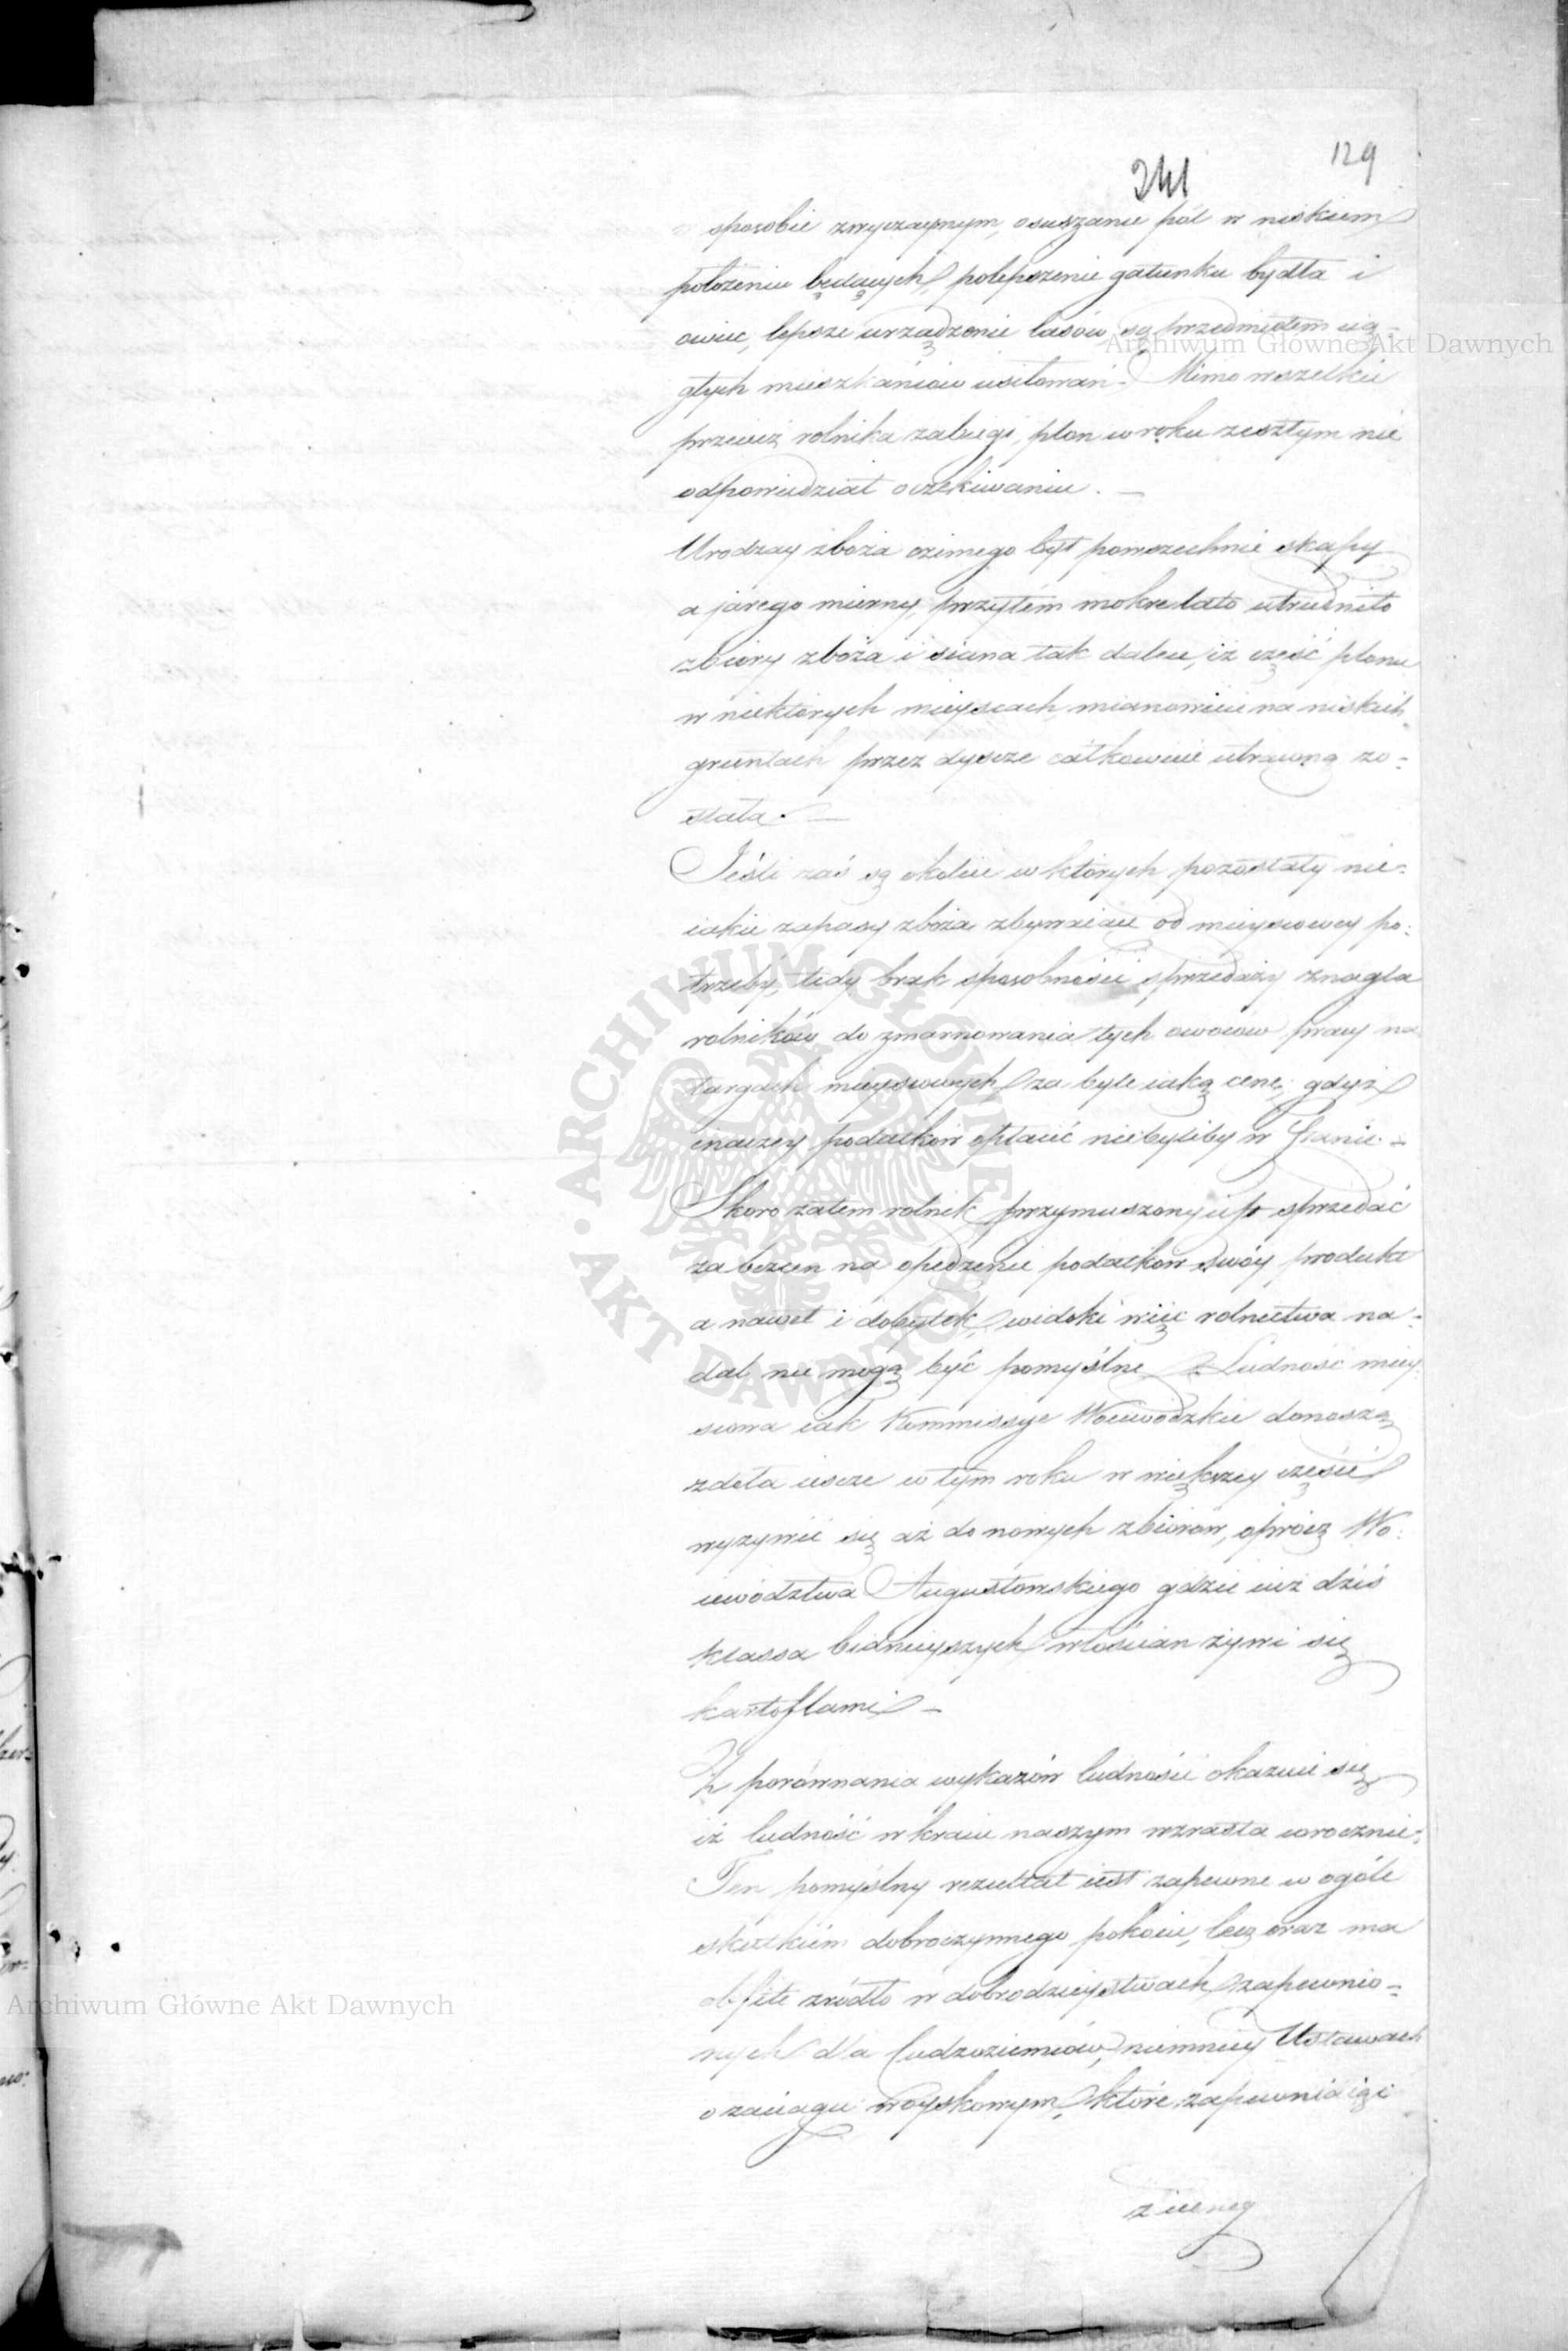 241
129
sposobie zwyczaynym, osuszanie pól w niskiem
położeniu będących, polepszenie gatunku bydła i
owiec, lepsze urządzenie lasów są przedmiotem cią-
Archiwum Główne Akt Dawnych
głych mieszkańców usiłowań. Mimo wszelkie
przecież rolnika zabiegi, plon w roku zeszłym nie
odpowiedział oczekiwaniu. —
Urodzay zboża ozimego był powszechnie skąpy
a jarego mierny, przytém mokre lato utrudniło
zbiory zboża i siana tak dalece, iż część plonu
w niektórych mieyscach, mianowicie na niskich
gruntach przez dyszcze całkowicie utraconą zo-
stała. —
Jeśli zaś są okolice w których pozostały nie-
iakie zapasy zboża zbywaiące od mieyscowey po-
trzeby, tedy brak sposobności sprzedaży znagla
rolników do zmarnowania tych owoców pracy na
targach mieyscowych za byle iaką cenę; gdyż
inaczey podatków opłacić niebyliby w Stanie. —
Skoro zatem rolnik przymuszony iest sprzedać
za bezcen na opędzenie podatków swóy produkt
a nawet i dobytek, widoki więc rolnictwa na-
dal nie mogą być pomyślne. Ludność miey-
scowa iak Kommissye Woiewódzkie donoszą
zdoła ieszcze w tym roku w większey części
wyżywić się aż do nowych zbiorów, oprócz Wo-
iewództwa Augustowskiego gdzie iuż dziś
klassa biednieyszych włościan żywi się
kartoflami —
Z porównania wykazów ludności okazuie się
iż ludność w kraiu naszym wzrasta corocznie.
Ten pomyślny rezultat iest zapewne w ogóle
skutkiém dobroczynnego pokoiu, lecz oraz ma
obfite źródło w dobrodzieystwach zapewnio-
Archiwum Główne Akt Dawnych
nych dla Cudzoziemców, niemniey Ustawach
o zaciągu woyskowym, które zapewniaiąc
z iedney
ARCHIWUM GŁÓWNE AKT DAWNYCH